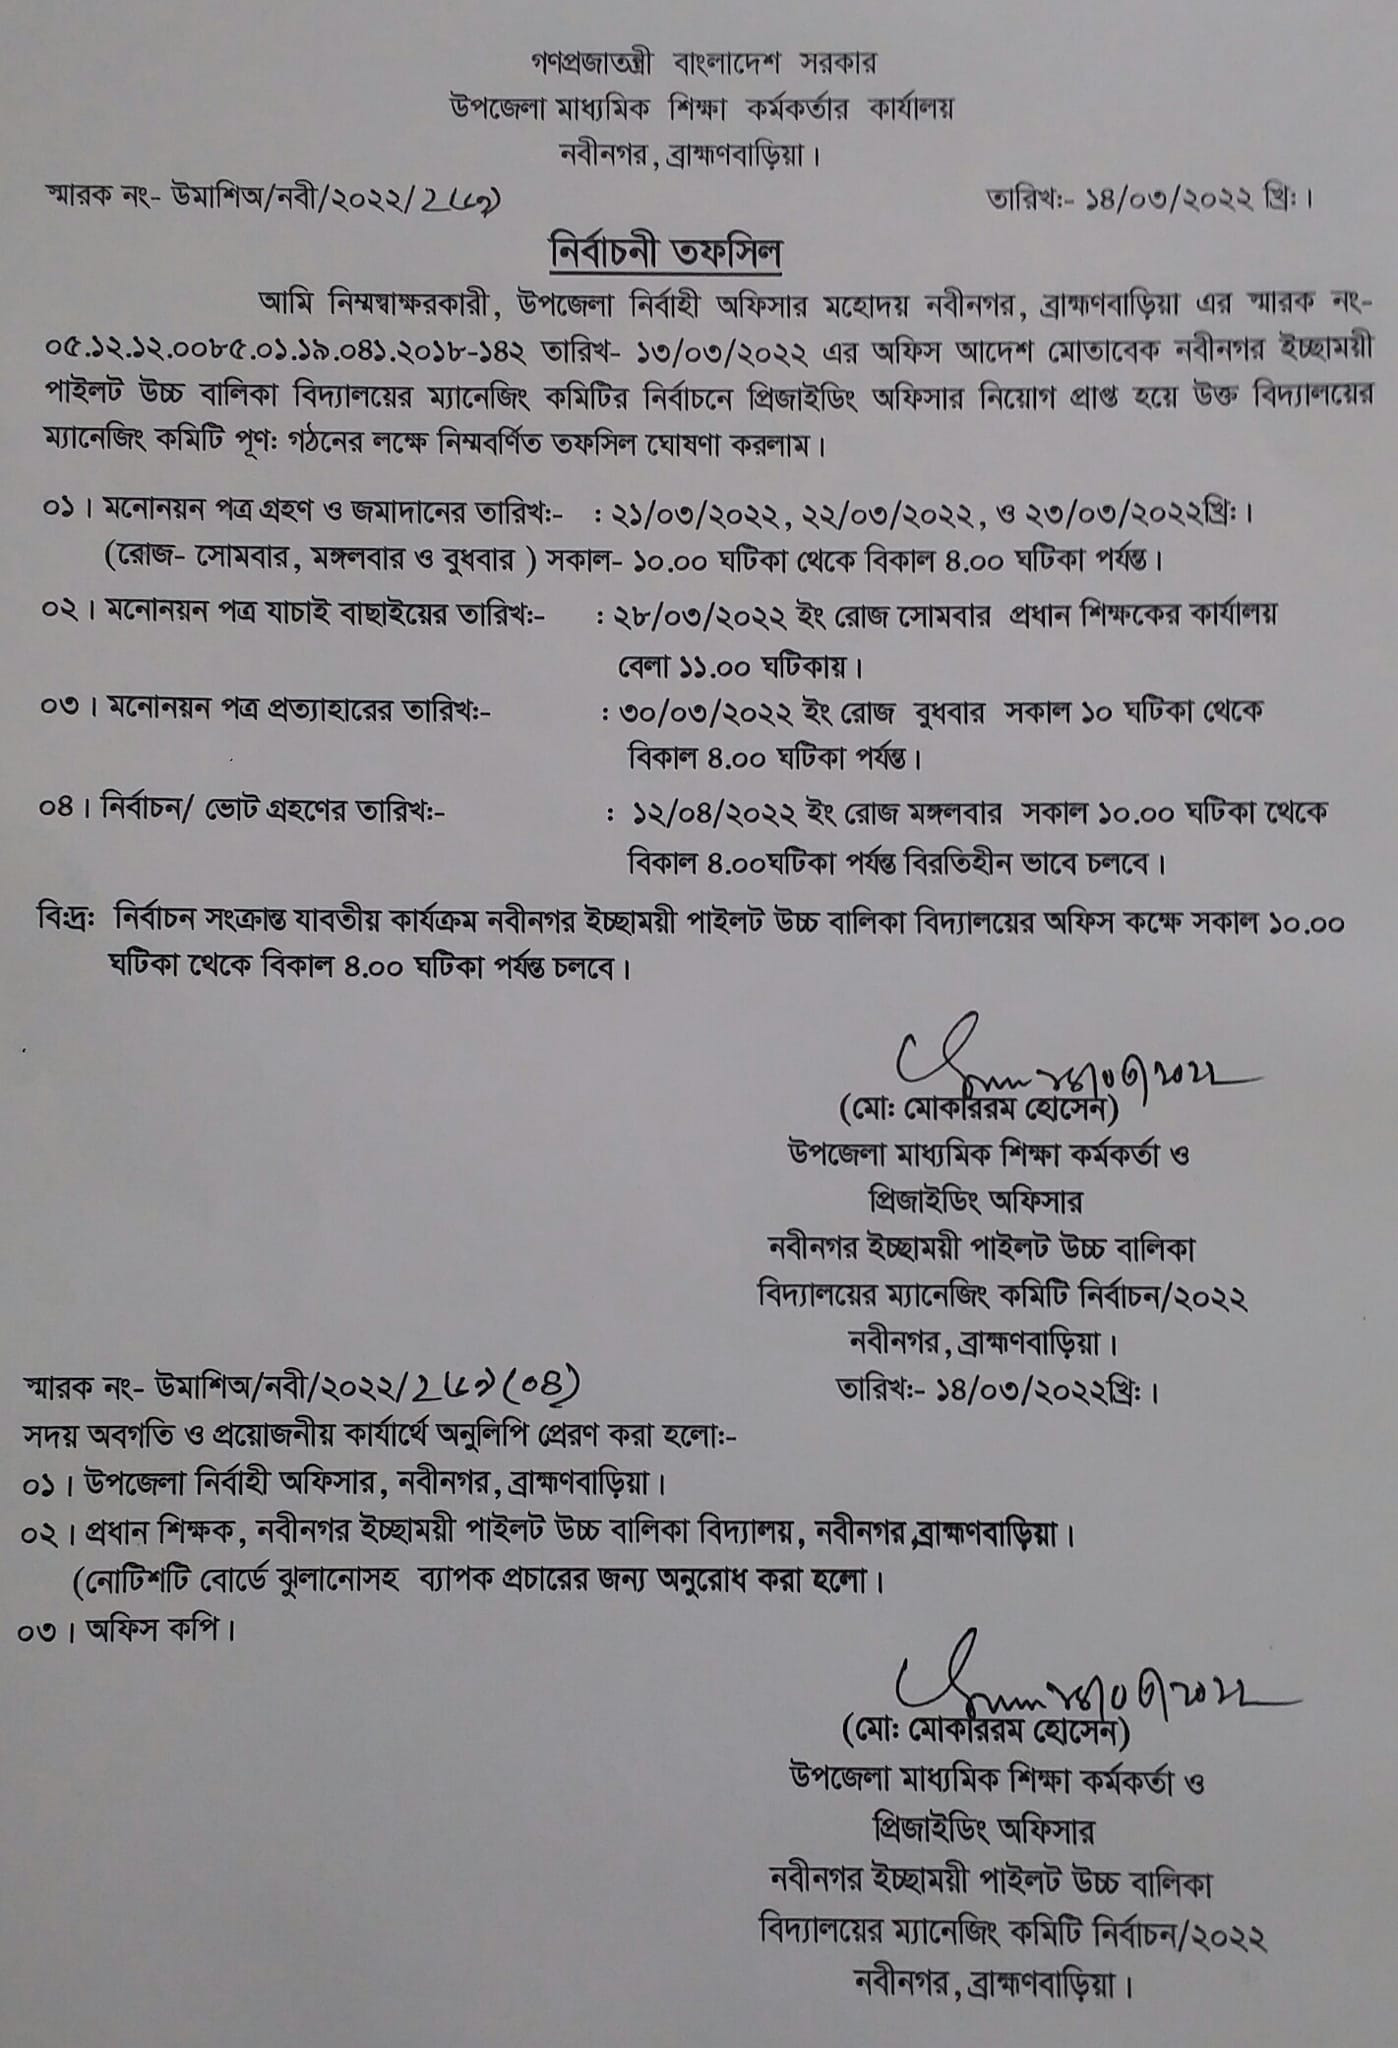 গণপ্রজাতন্ত্রী বাংলাদেশ সরকার
উপজেলা মাধ্যমিক শিক্ষা কর্মকর্তার কার্যালয়
নবীনগর, ব্রাহ্মণবাড়িয়া।
স্মারক নং- উমাশিঅ/নবী/২০২২/ তারিখঃ- ১৪/০৩/২০২২ খ্রিঃ।
নির্বাচনী তফসিল
আমি নিম্মস্বাক্ষরকারী, উপজেলা নির্বাহী অফিসার মহোদয় নবীনগর, ব্রাহ্মণবাড়িয়া এর স্মারক নং-
০৫.১২.১২.০০৮৫.০১.১৯.০৪১.২০১৮-১৪২ তারিখ- ১৩/০৩/২০২২ এর অফিস আদেশ মোতাবেক নবীনগর ইচ্ছাময়ী
পাইলট উচ্চ বালিকা বিদ্যালয়ের ম্যানেজিং কমিটির নির্বাচনে প্রিজাইডিং অফিসার নিয়োগ প্রাপ্ত হয়ে উক্ত বিদ্যালয়ের
ম্যানেজিং কমিটি পূণঃ গঠনের লক্ষে নিম্মবর্ণিত তফসিল ঘোষণা করলাম।
০১। মনোনয়ন পত্র গ্রহণ ও জমাদানের তারিখঃ- : ২১/০৩/২০২২, ২২/০৩/২০২২, ও ২৩/০৩/২০২২খ্রিঃ।
(রোজ- সোমবার, মঙ্গলবার ও বুধবার ) সকাল- ১০.০০ ঘটিকা থেকে বিকাল ৪.০০ ঘটিকা পর্যন্ত।
০২। মনোনয়ন পত্র যাচাই বাছাইয়ের তারিখঃ- : ২৮/০৩/২০২২ ইং রোজ সোমবার প্রধান শিক্ষকের কার্যালয়
বেলা ১১.০০ ঘটিকায়।
০৩। মনোনয়ন পত্র প্রত্যাহারের তারিখঃ- : ৩০/০৩/২০২২ ইং রোজ বুধবার সকাল ১০ ঘটিকা থেকে
বিকাল ৪.০০ ঘটিকা পর্যন্ত।
০৪। নির্বাচন/ ভোট গ্রহণের তারিখঃ- : ১২/০৪/২০২২ ইং রোজ মঙ্গলবার সকাল ১০.০০ ঘটিকা থেকে
বিকাল ৪.০০ঘটিকা পর্যন্ত বিরতিহীন ভাবে চলবে।
বিঃদ্রঃ নির্বাচন সংক্রান্ত যাবতীয় কার্যক্রম নবীনগর ইচ্ছাময়ী পাইলট উচ্চ বালিকা বিদ্যালয়ের অফিস কক্ষে সকাল ১০.০০
ঘটিকা থেকে বিকাল ৪.০০ ঘটিকা পর্যন্ত চলবে।
১৪/০৩/২০২২
(মোঃ মোকাররম হোসেন)
উপজেলা মাধ্যমিক শিক্ষা কর্মকর্তা ও
প্রিজাইডিং অফিসার
নবীনগর ইচ্ছাময়ী পাইলট উচ্চ বালিকা
বিদ্যালয়ের ম্যানেজিং কমিটি নির্বাচন/২০২২
নবীনগর, ব্রাহ্মণবাড়িয়া।
স্মারক নং- উমাশিঅ/নবী/২০২২/ (০৪) তারিখঃ- ১৪/০৩/২০২২খ্রিঃ।
সদয় অবগতি ও প্রয়োজনীয় কার্যার্থে অনুলিপি প্রেরণ করা হলোঃ-
০১। উপজেলা নির্বাহী অফিসার, নবীনগর, ব্রাহ্মণবাড়িয়া।
০২। প্রধান শিক্ষক, নবীনগর ইচ্ছাময়ী পাইলট উচ্চ বালিকা বিদ্যালয়, নবীনগর,ব্রাহ্মণবাড়িয়া।
(নোটিশটি বোর্ডে ঝুলানোসহ ব্যাপক প্রচারের জন্য অনুরোধ করা হলো।
০৩। অফিস কপি।
১৪/০৩/২০২২
(মোঃ মোকাররম হোসেন)
উপজেলা মাধ্যমিক শিক্ষা কর্মকর্তা ও
প্রিজাইডিং অফিসার
নবীনগর ইচ্ছাময়ী পাইলট উচ্চ বালিকা
বিদ্যালয়ের ম্যানেজিং কমিটি নির্বাচন/২০২২
নবীনগর, ব্রাহ্মণবাড়িয়া।